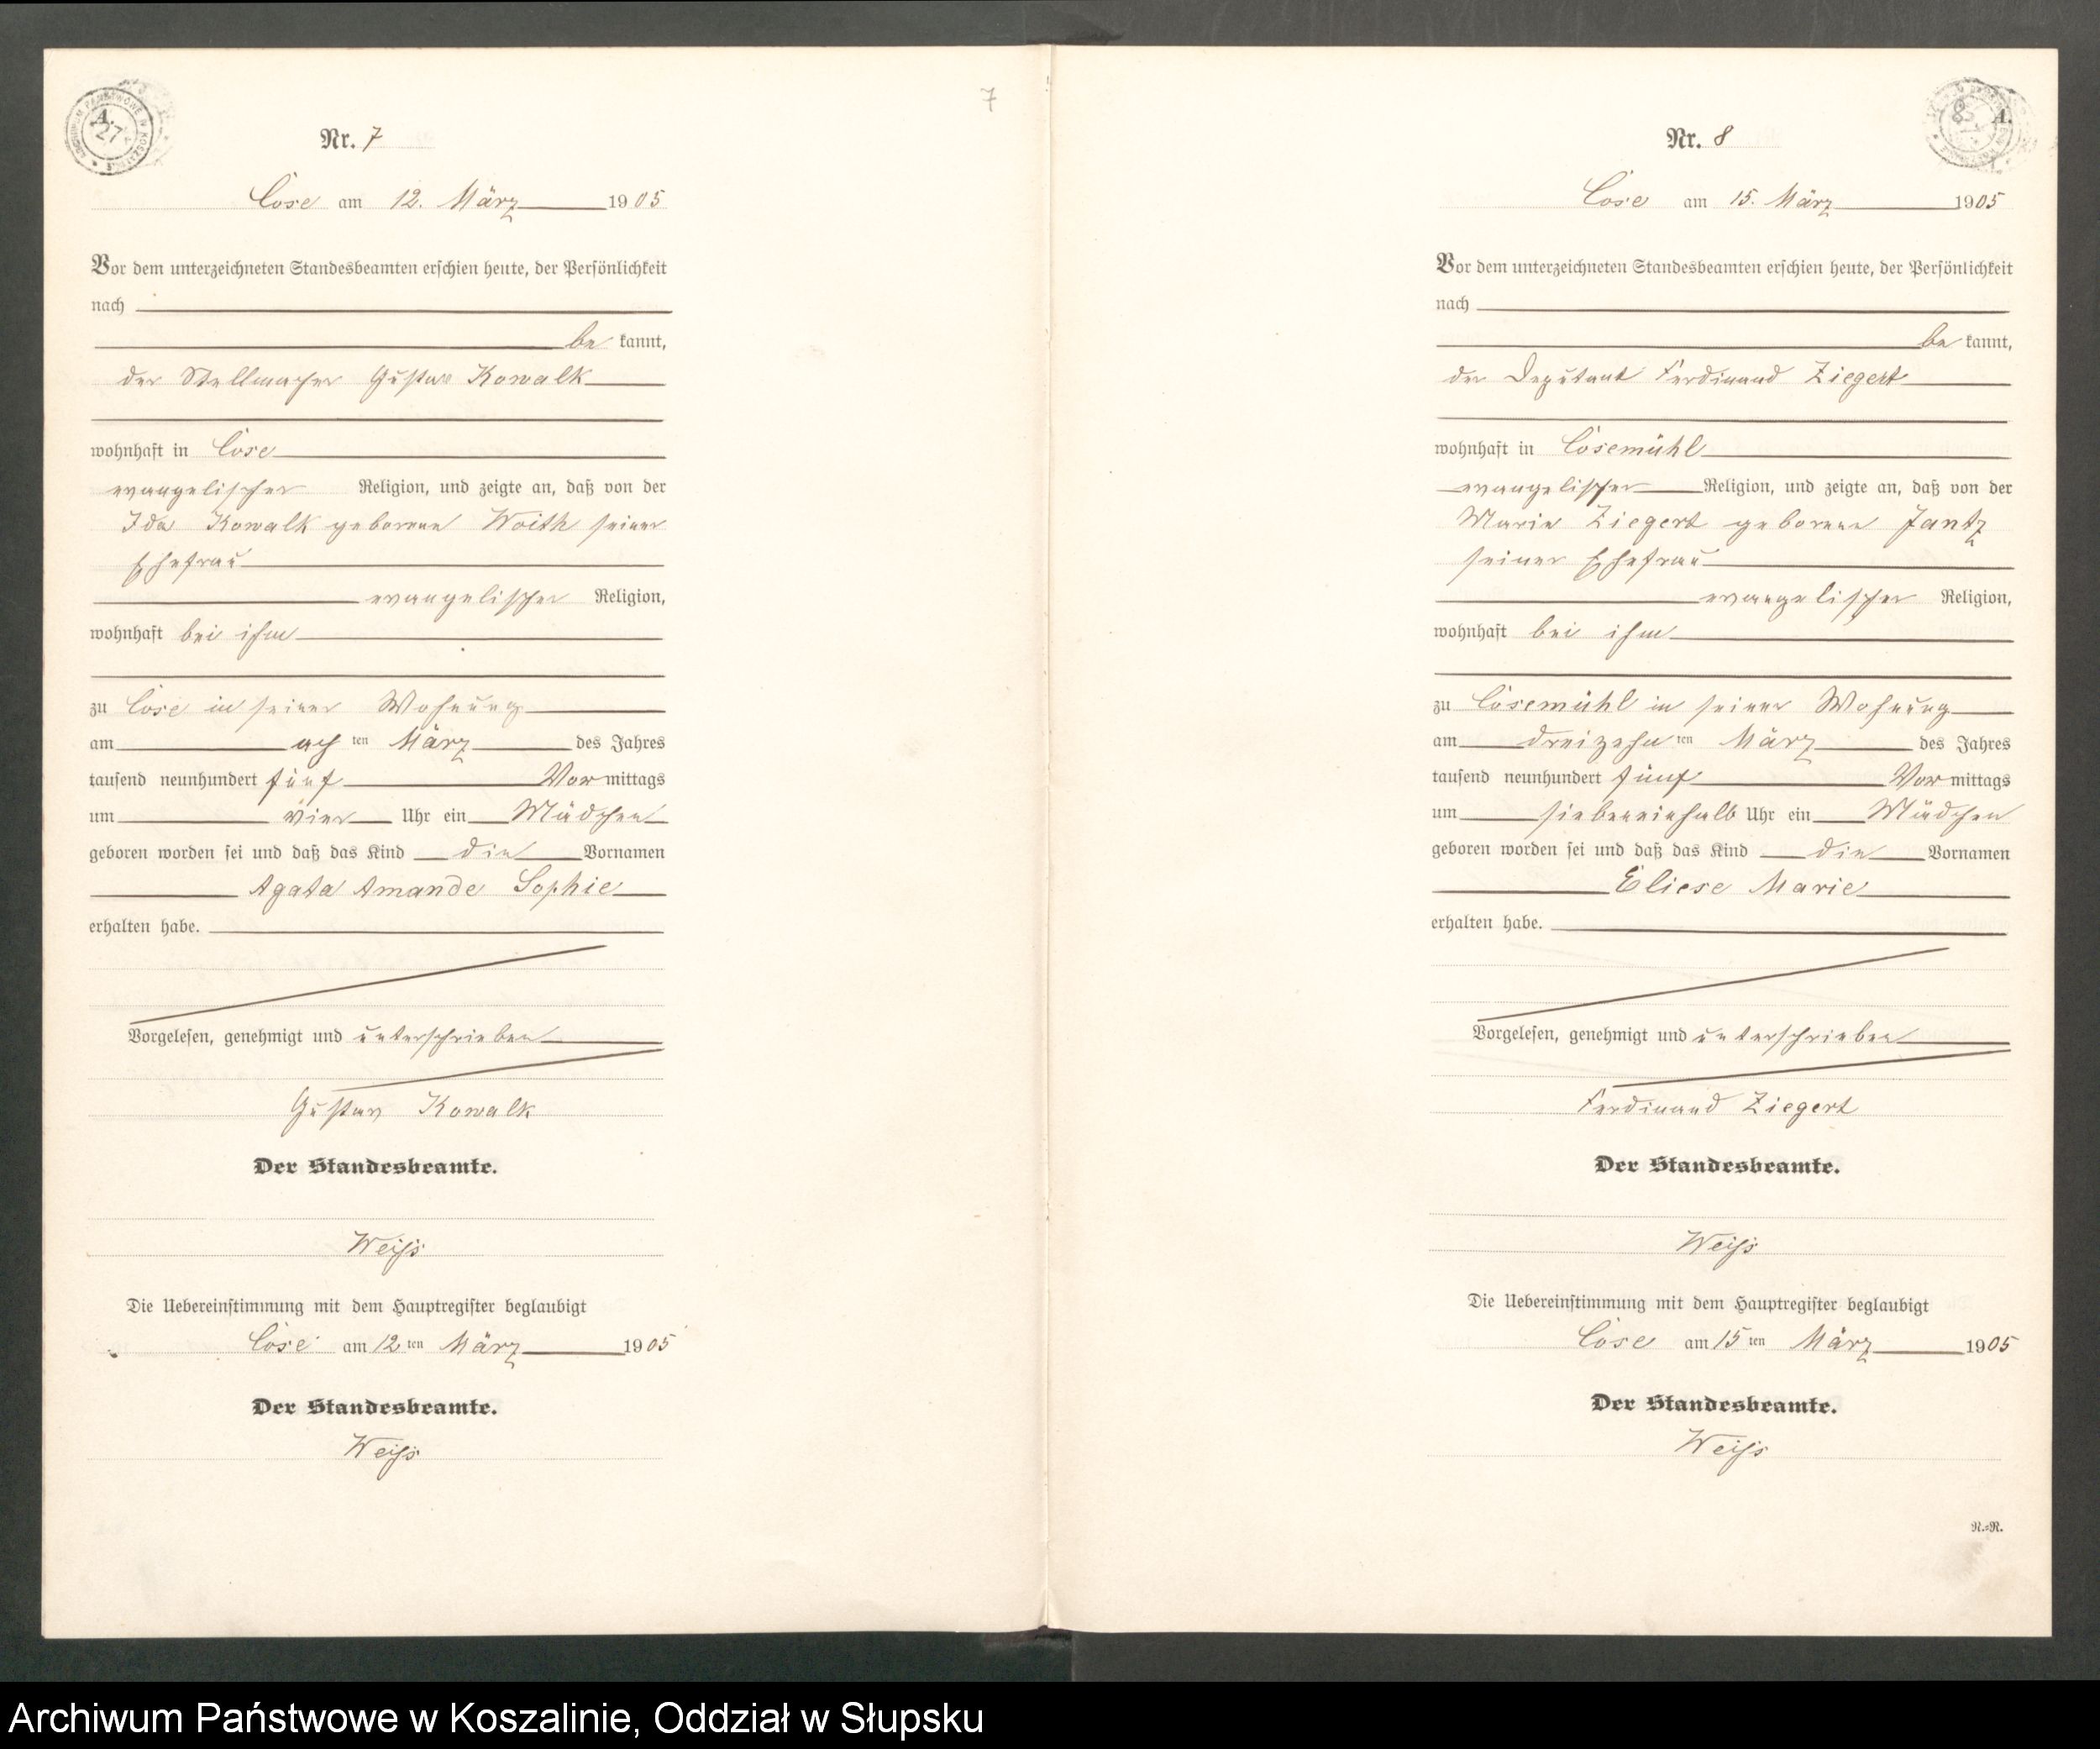 7
Nr. 7
Cose am 12. März 1905
Vor dem unterzeichneten Standesbeamten erschien heute, der Persönlichkeit
nach
be kannt,
der Stellmacher Gustav Kowalk
wohnhaft in Cose
evangelischer Religion, und zeigte an, daß von der
Ida Kowalk geborene Woith seiner
Ehefrau
evangelischer Religion,
wohnhaft bei ihm
zu Cose in seiner Wohnung
am acht ten März des Jahres
tausend neunhundert fünf Vor mittags
um vier Uhr ein Mädchen
geboren worden sei und daß das Kind die Vornamen
Agata Amande Sophie
erhalten habe.
Vorgelesen, genehmigt und unterschrieben
Gustav Kowalk
Der Standesbeamte.
Weiß
Die Uebereinstimmung mit dem Hauptregister beglaubigt
Cose am 12 ten März 1905
Der Standesbeamte.
Weiß
Nr. 8
Cose am 15. März 1905
Vor dem unterzeichneten Standesbeamten erschien heute, der Persönlichkeit
nach
be kannt,
der Deputant Ferdinand Ziegert
wohnhaft in Cosemühl
evangelischer Religion, und zeigte an, daß von der
Marie Ziegert geborene Jantz
seiner Ehefrau
evangelischer Religion,
wohnhaft bei ihm
zu Cosemühl in seiner Wohnung
am dreizehn ten März des Jahres
tausend neunhundert fünf Vor mittags
um siebeneinhalb Uhr ein Mädchen
geboren worden sei und daß das Kind die Vornamen
Eliese Marie
erhalten habe.
Vorgelesen, genehmigt und unterschrieben
Ferdinand Ziegert
Der Standesbeamte.
Weiß
Die Uebereinstimmung mit dem Hauptregister beglaubigt
Cose am 15 ten März 1905
Der Standesbeamte.
Weiß
R.=R.
Archiwum Państwowe w Koszalinie, Oddział w Słupsku